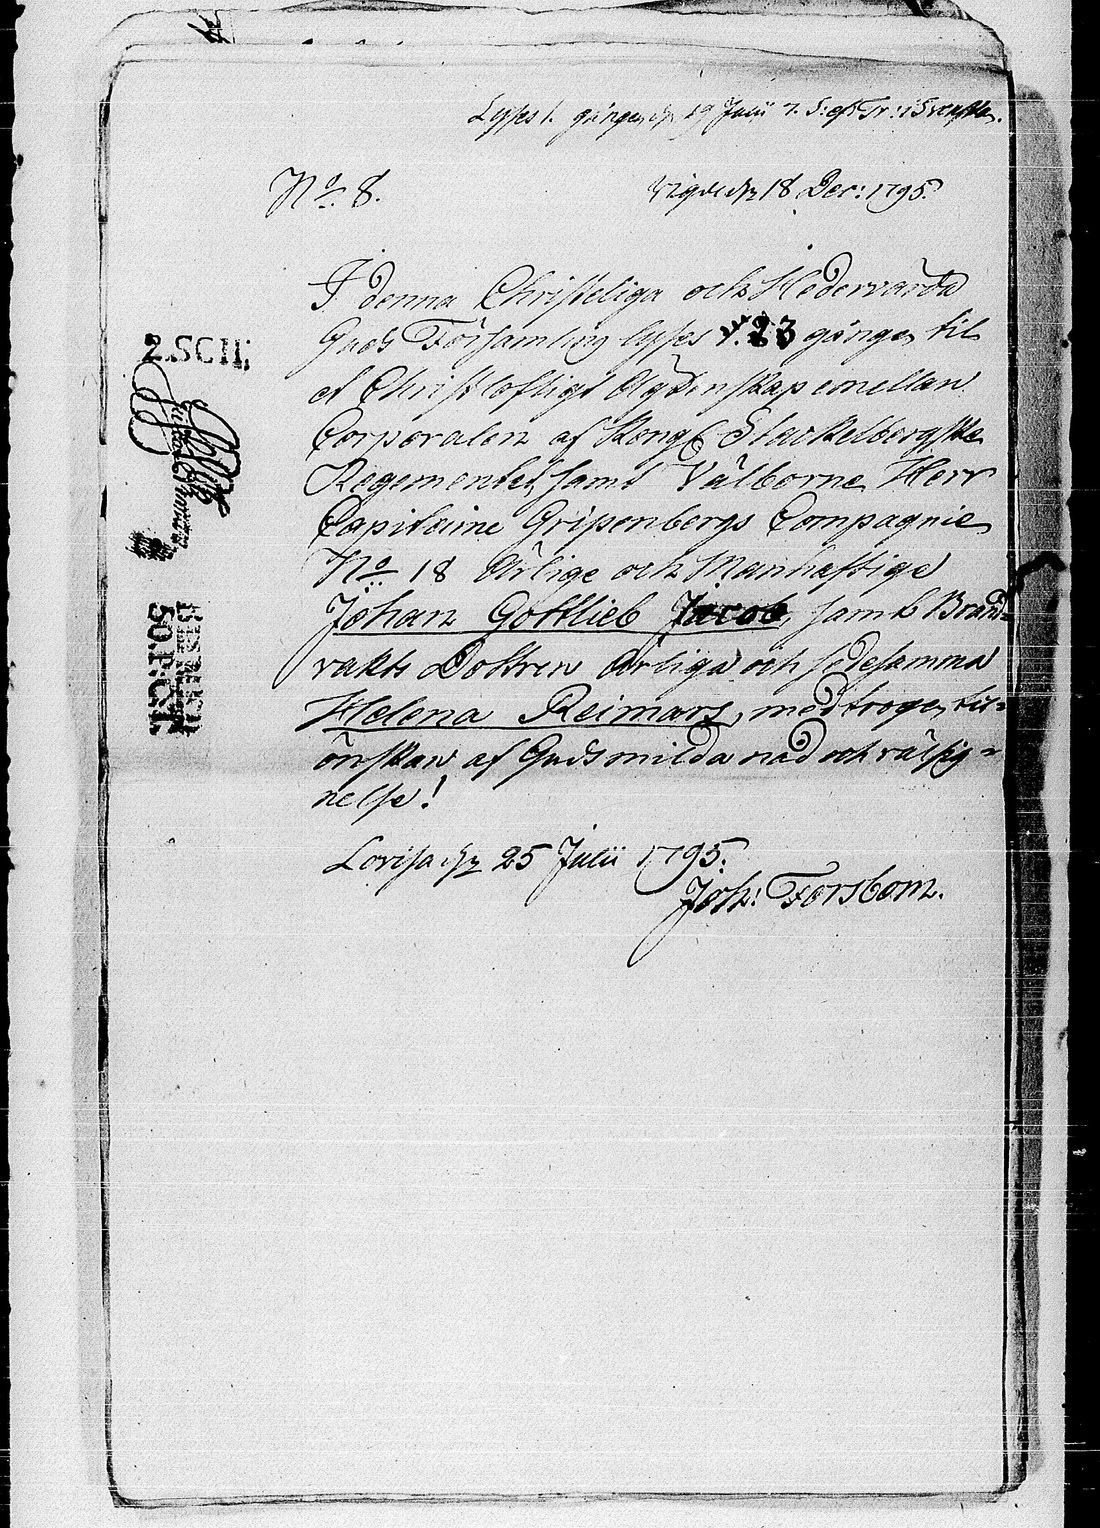 Lyses 1. gången d. 19 Julii 7. S. eft. Tr: i Svenska.
No. 8.
Vigde den 18 Dec: 1795.
I denna Christeliga och Hedervärda
Guds Församling lyses 1. 2 3 gången til
et Christloftigt Ägtenskap emellan
Corporalen af Kongl. Stackelbergska
Regementet, samt Välborne Herr
Capitaine Gripenbergs Compagnie
No 18 Ärlige och Manhaftige
Johan Gottlieb Jacob, samt Brand-
vakts Dottren Ärliga och sedesamma
Helena Reimars, med trogen til-
önskan af Guds milda nåd och välsig-
nelse!
Lovisa den 25 Julii 1795.
Joh: Forsbom.
2.SCH;